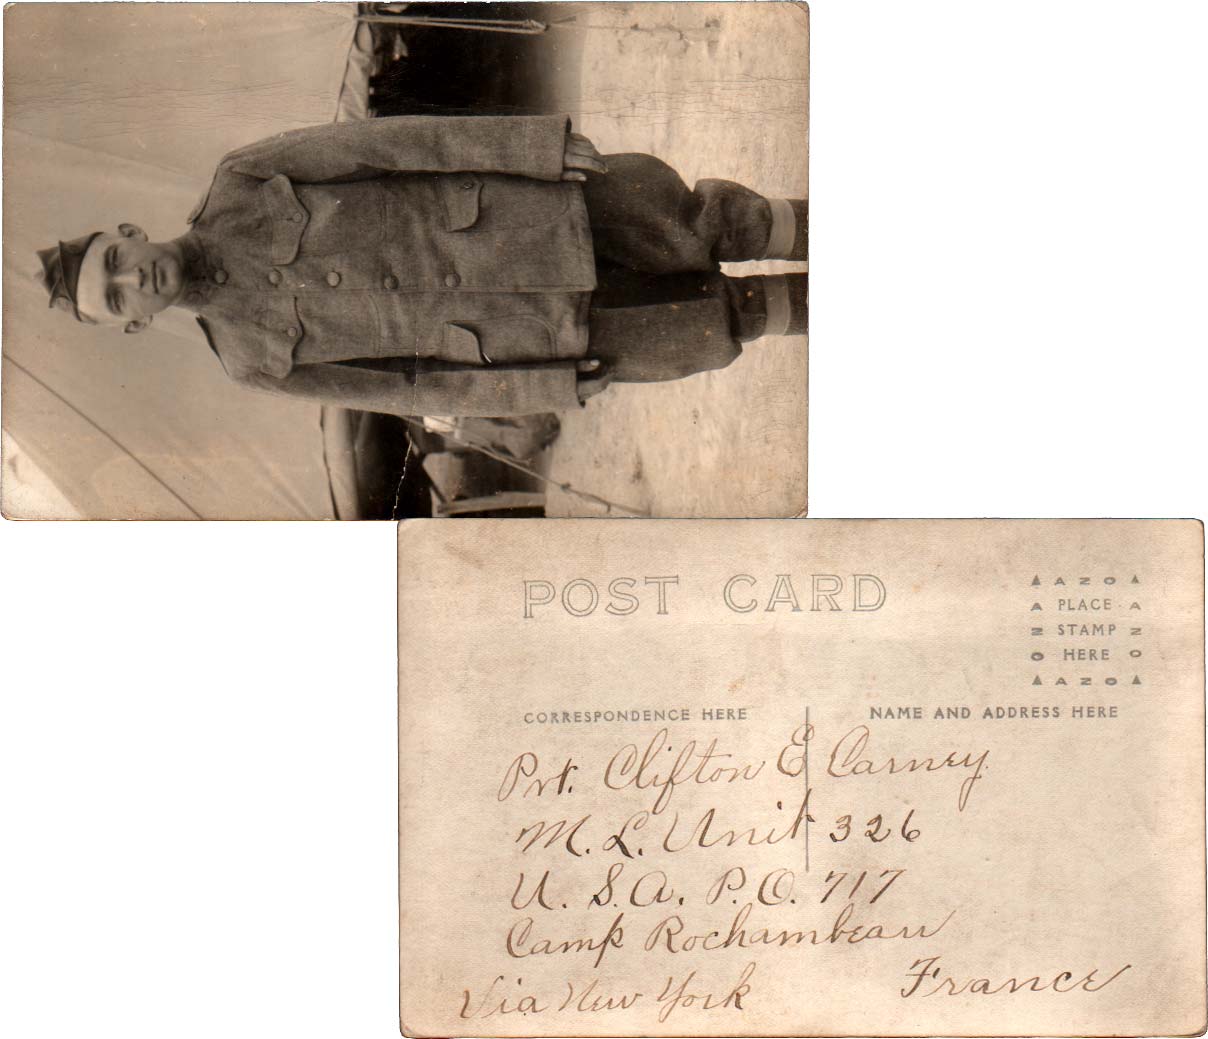 POST CARD
▲ A Z O ▲
A PLACE A
Z STAMP Z
O HERE O
▲ A Z O ▲
CORRESPONDENCE HERE
NAME AND ADDRESS HERE
Pvt. Clifton E Carney.
M. L. Unit 326
U. S. A. P. O. 717
Camp Rochambeau
Via New York France